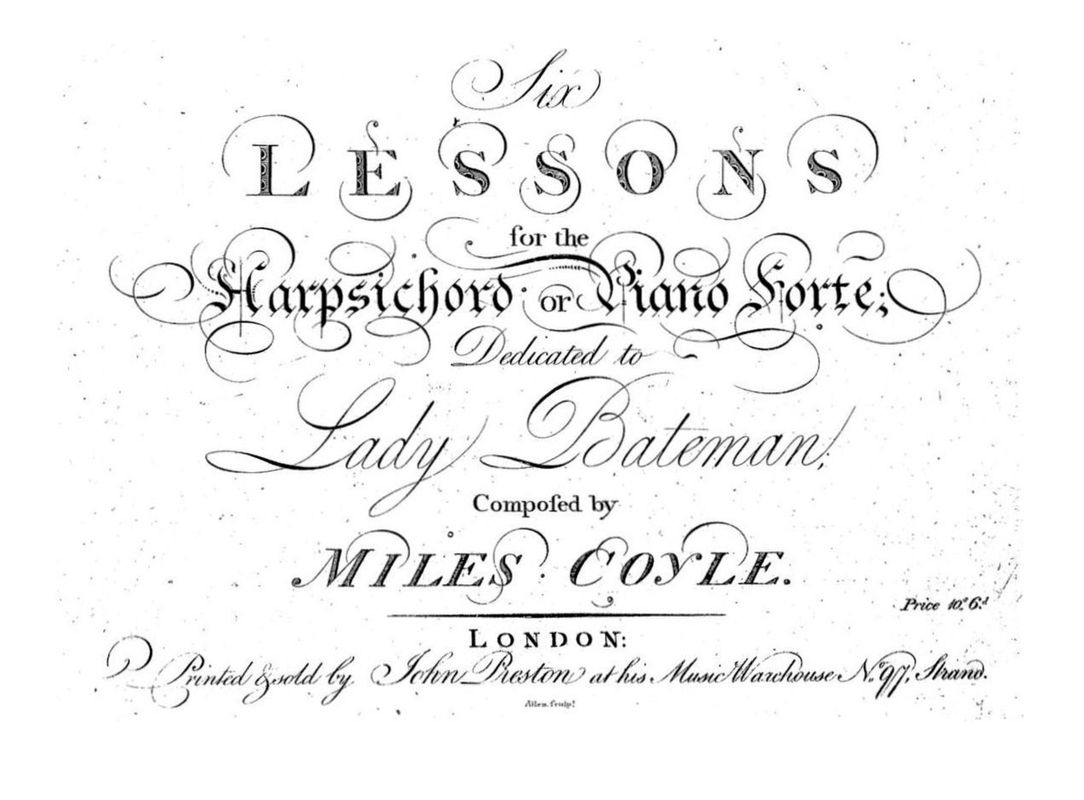 Six
LESSONS
for the
Harpsichord or Piano Forte;
Dedicated to
Lady Bateman;
Compoſed by
MILES COYLE.
Price 10.s 6.d
LONDON:
Printed & sold by John Preston at his Music Warehouse No. 97, Strand.
Allen Sculpt.